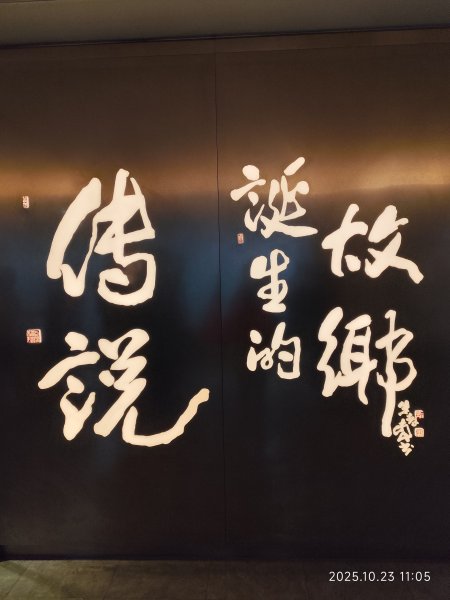 故鄉
誕生的
傳説
2025.10.23 11:05